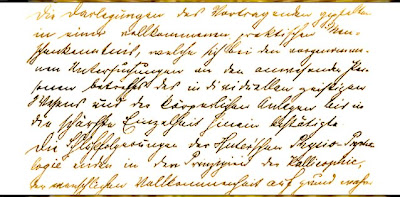 Die Darlegungen des Vortragenden gipfelten
in einer vollkommenen praktischen Men-
schenkenntnis, welche sich bei den vorgenomme-
nen Untersuchungen an den anwesenden Per-
sonen betreffs des individuellen geistigen
Wesens und der körperlichen Anlagen bis in
die schärfste Einzelheit hinein bestätigte.
Die Schlußfolgerungen der Huterschen Physio-Psycho-
logie enden in den Prinzipien der Kallisophie,
der menschlichen Vollkommenheit auf grund wahr-